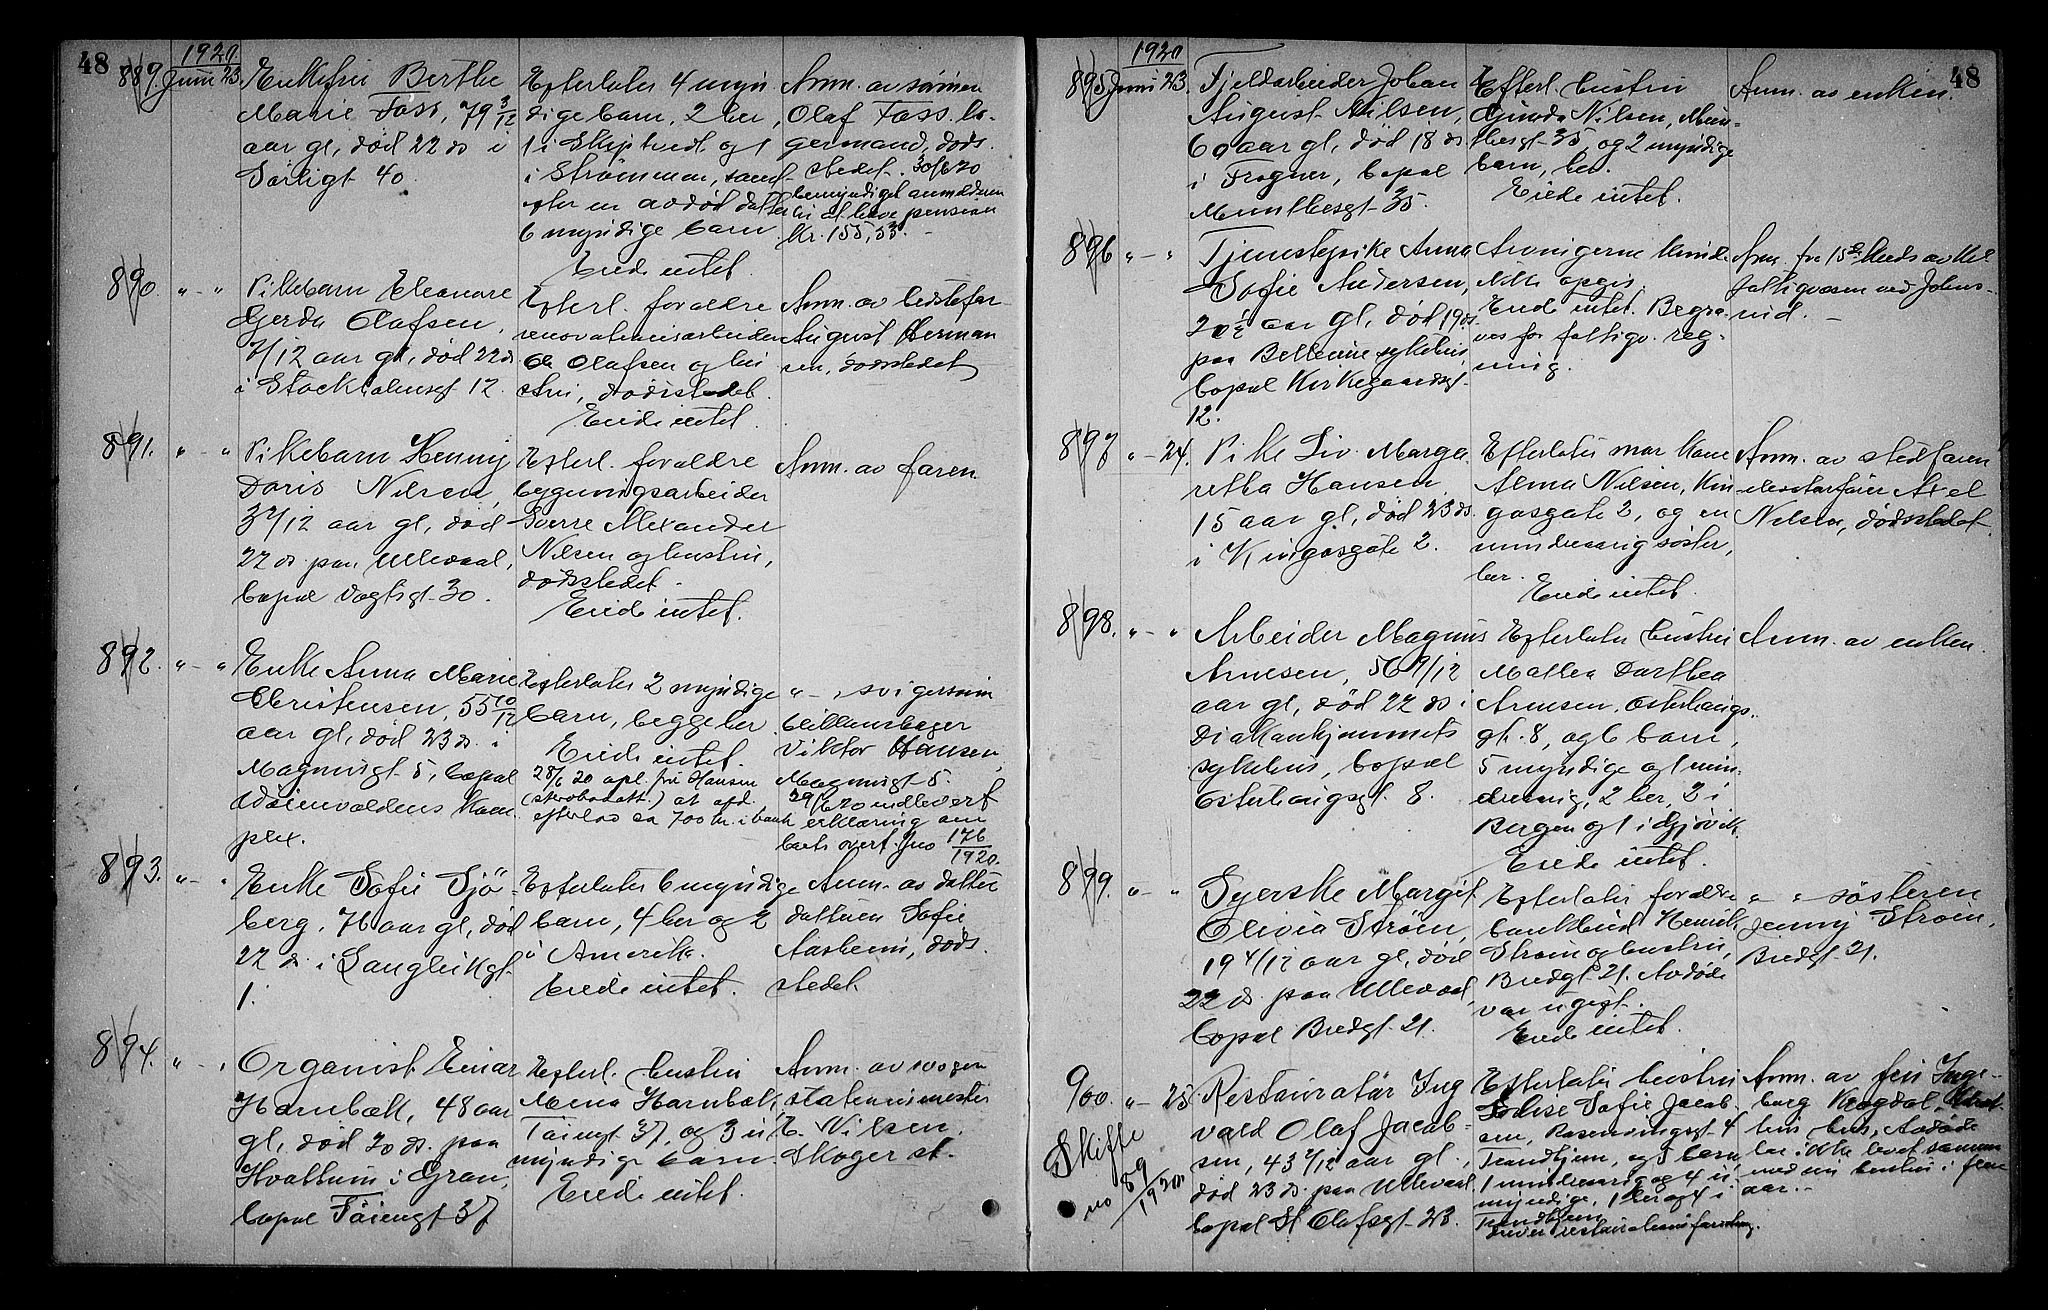 48
1920
889. Juni 23.
Enkefru Berthe
Marie Foss, 79 3/12
aar gl, død 22 ds i
Sørligt 40.
Efterlater 4 myn
dige barn, 2 her,
1 i Skiptvedt og 1
i Strømmen, samt
efter en avdød datter
6 myndige barn
Eiede intet.
Anm. av sønnen
Olaf Foss, la-
germand, døds-
stedet. 30/6 20
bemyndiget anmelderen
til at heve pension
Kr. 155,53.-
890. " - "
Pikebarn Eleonore
Gerda Olafsen,
7/12 aar gl, død 22 ds
i Stockholmsgt 12.
Efterl. forældre
renovationsarbeider
Ole Olafsen og hu
stru, dødsstedet.
Eiede intet.
Anm. av bedstefar
August Herman
sen, dødsstedet
891. " - "
Pikebarn Henny
Doris Nilsen,
3 7/12 aar gl, død
22 ds paa Ullevaal,
bopæl Vogtsgt 30.
Efterl. forældre
bygningsarbeider
Sverre Alexander
Nilsen og hustru,
dødsstedet.
Eiede intet.
Anm. av faren
892. " - "
Enke Anna Marie
Christensen, 55 10/12
aar gl, død 23 ds i
Magnusgt 5, bopæl
Vøienvoldens kom
plex.
Efterlater 2 myndige
barn, begge her.
Eiede intet.
28/6 20 opl. fru Hansen
at afd.
efterlod ca 700 kr. i bank
" - " svigersøn
Viktor Hansen,
Magnusgt 5
29/6 20 indlevert
erklæring om
boets overt. Jno 176/1920.
893. " - "
Enke Sofie Sjö-
berg, 76 aar gl, død
22 ds i Langleikgt
1.
Efterlater 6 myndige
barn, 4 her og 2
i Amerika.
Eiede intet.
Anm. av datter
datteren Sofie
Aasheim, døds-
stedet.
894. " - "
Organist Einar
Harnbæk, 48 aar
gl, død 20 ds. paa
Hvattum i Gran,
bopæl Tøiengt 37
Efterl. hustru
Mena Harnbæk,
Tøiengt 37, og 3 u
myndige barn.
Eiede intet.
Anm. av svogeren
stationsmester
E. Nilsen,
Skoger st.
48
1920
895 Juni 23.
Fjeldarbeider Johan
August Nilsen,
60 aar gl, død 18 ds
i Frogner, bopæl
Munthesgt 35.
Efterl. hustru
Gunda Nilsen, Mun-
thesgt 35, og 2 myndige
barn, her.
Eiede intet.
Anm. av enken.
896 " - "
Tjenestepike Anna
Sofie Andersen,
20 1/2 aar gl, død 19 ds
paa Bellevue sykehus
bopæl Kirkegaardsgt
12.
Arvingerne kunde
ikke opgis.
Eiede intet. Begra-
ves for fattigv. reg-
ning.
Anm. fra 15de kreds av Kr.a
fattigvæsen ved Johns-
rud. -
897 " - 24.
Pike Liv Marga
retha Hansen,
15 aar gl, død 23 ds
i Kingosgate 2.
Efterlater mor kone
Alma Nilsen, Kin
gosgate 2, og en
mindreaarig søster,
her.
Eiede intet.
Anm. av stedfaren
Axel
Nilsen, dødsstedet
898. " - "
Arbeider Magnus
Arnesen, 56 9/12
aar gl, død 22 ds i
Diakonhjemmets
sykehus, bopæl
Osterhausgt 8.
Efterlater hustru
Mathea Dorthea
Arnesen, Osterhaus-
gt. 8, og 6 barn,
5 myndige og 1 min-
dreaarig, 2 her, 3 i
Bergen og 1 i Gjøvik.
Eiede intet.
Anm. av enken.
899. " - "
Syerske Margit
Olivia Strøm,
19 4/12 aar gl, død
22 ds. paa Ullevaal,
bopæl Bredgt 21.
Efterlater forældre
bankbud Henrik
Strøm og hustru,
Bredgt 21. Avdøde
var ugift.
Eiede intet.
" " søsteren
Jenny Strøm,
Bredgt 21.
900. " - 25
Skifte
no 89/1920
Restauratør Ing
vald Olaf Jacob-
sen, 43 7/12 aar gl.,
død 23 ds. paa Ullevaal,
bopæl St Olafsgt 23.
Efterlater hustru
Lovise Sofie Jacob
sen, Rosenborggt 4
Trondhjem, og 5 barn,
1 mindreaarig og 4 u-
myndige, 1 her og 4 i
Trondhjem.
Anm. av frk Inge-
borg Krogdal,
hus, Avdøde
har ikke levet sammen
med sin hustru i flere
aar. -